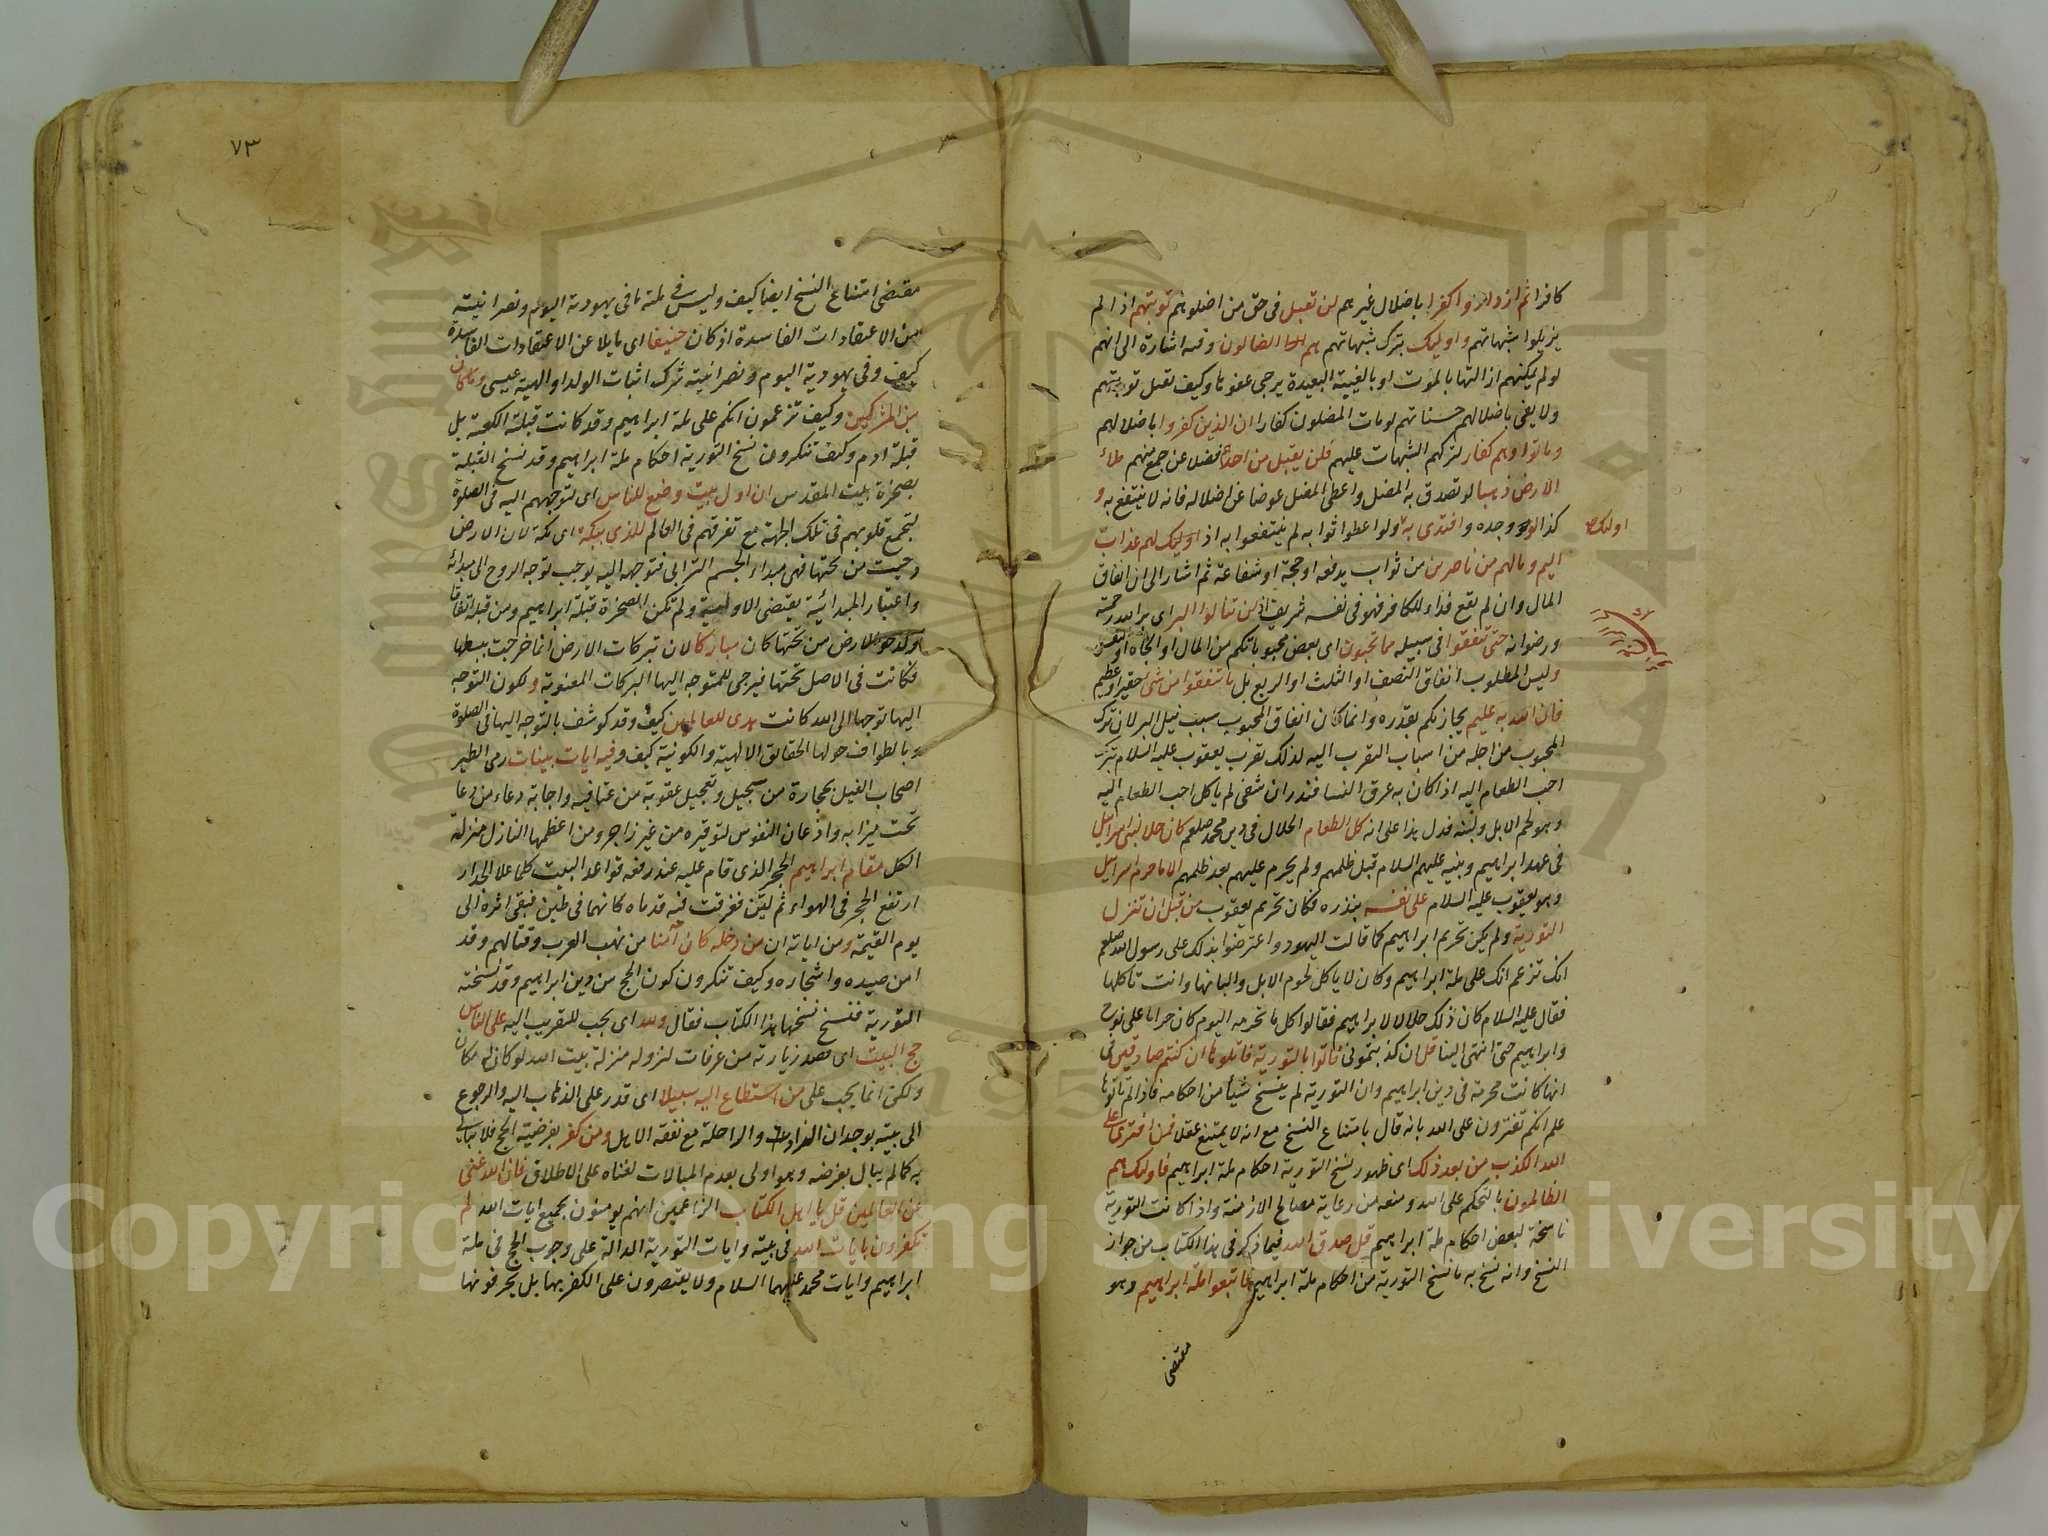 كافرا ثم ازدادوا كفرا باضلال غيرهم لن تقبل فى حق من اضلوهم توبتهم اذا لم
يزيلوا شبهاتهم واوليك بترك شبهاتهم هم الضالون وفيه اشارة الى انهم
لو لم يمكنهم ازالتها بالموت او بالغيبة البعيدة يرجى عفوها وكيف تقبل توبتهم
ولا يفى باضلالهم حسناتهم لو مات المضلون كفارا ان الذين كفروا باضلالهم
وماتوا وهم كفار لتركهم الشبهات عليهم فلن يقبل من احدهم فضلا عن جمع منهم ملء
الارض ذهبا لو تصدق به المضل واعطى المضل عوضا عن اضلاله فانه لا ينتفع به و
كذا لو وجده وافتدى به ولو اعطوا ثوابه لم ينتفعوا به اذ اوليك لهم عذاب
اوليك
اليم ومالهم من ناصرين من ثواب يدفعه او حجة او شفاعة ثم اشار الى ان انفاق
المال وان لم يقع فداء للكافر فهو فى نفسه شريف اذ لن تنالوا البر اى بر الله رحمته
ورضوانه حتى تنفقوا فى سبيله مما تحبون اى بعض محبوباتكم من المال او الجاه او
وليس المطلوب انفاق النصف او الثلث او الربع بل ما تنفقوا من شى حقير او عظيم
فان الله به عليم يجازيكم بقدره وانما كان انفاق المحبوب سبب نيل البر لان ترك
المحبوب من اجله من اسباب التقرب اليه لذلك تقرب يعقوب عليه السلام بترك
احب الطعام اليه اذا كان به عرق النسا فنذر ان شفى لم ياكل احب الطعام اليه
وهو لحم الابل ولبنه فدل هذا على انه كل الطعام الحلال فى دين محمد صلعم كان حلا لبنى اسرايل
فى عهد ابراهيم وبنيه عليهم السلام قبل ظلمهم ولم يحرم عليهم بعد ظلمهم الا ما حرم اسرايل
وهو يعقوب عليه السلام على نفسه بنذره فكان تحريم يعقوب من قبل ان تنزل
التورية ولم يكن تحريم ابراهيم كما قالت اليهود واعترضوا بذلك على رسول الله صلعم
انك تزعم انك على ملة ابراهيم وكان لا ياكل لحوم الابل والبانها وانت تاكلها
فقال عليه السلام كان ذلك حلالا لابراهيم فقالوا كل ما نحرمه اليوم كان حراما على نوح
وابراهيم حتى انتهى الينا قل ان كذبتمونى فاتوا بالتورية فاتلوها ان كنتم صادقين فى
انها كانت محرمة فى دين ابراهيم وان التورية لم ينسخ شيأ من احكامه فاذا لم تاتوا بها
علم انكم تفترون على الله بانه قال بامتناع النسخ مع انه لا يمتنع عقلا فمن افترى على
الله الكذب من بعد ذلك اى ظهور نسخ التورية احكام ملة ابراهيم فاوليك هم
الظالمون بالتحكم على الله ومنعه من رعاية مصالح الازمنة واذا كانت التورية
ناسخة لبعض احكام ملة ابراهيم قل صدق الله فيما ذكر فى هذا الكتاب من جواز
النسخ وانه نسخ به ما نسخ التورية من احكام ملة ابراهيم فاتبعوا ملة ابراهيم وهو
مقتضى
٧٣
مقتضى امتناع النسخ ايضا كيف وليس فى ملته ما فى يهودية اليوم ونصرانيته
من الاعتقادات الفاسدة اذ كان حنيفا اى مايلا عن الاعتقادات الفاسدة
كيف وفى يهودية اليوم ونصرانيته شرك اثبات الولد او الهية عيسى وما كان
من المشركين وكيف تزعمون انكم على ملة ابراهيم وقد كانت قبلته الكعبة بل
قبلة ادم وكيف تنكرون نسخ التورية احكام ملة ابراهيم وقد نسخ القبلة
بصخرة بيت المقدس ان اول بيت وضع للناس اى لتوجههم اليه فى الصلوة
لتجمع قلوبهم فى تلك الجهة مع تفرقهم فى العالم للذى ببكة اى مكة لان الارض
دحيت من تحتها فهى مبداء الجسم الترابى فتوجهه اليه يوجب توجه الروح الى مبدائه
واعتبار المبدائية يقتضى الاولوية ولم تكن الصخرة قبلة ابراهيم ومن قبله اتفاقا
ولدحو الارض من تحتها كان مباركا لان تبركات الارض انما خرجت ببسطها
فكانت فى الاصل تحتها فيرجى للمتوجه اليها البركات المعنوية ولكون التوجه
اليها توجها الى الله كانت هدى للعالمين كيف وقد كوشف بالتوجه اليها فى الصلوة
وبالطواف حولها الحقائق الالهية والكونية كيف وفيه ايات بينات رمى الطير
اصحاب الفيل بحجارة من سجيل وتعجيل عقوبة من عتا فيه واجابة دعاء من دعا
تحت ميزابه واذعان النفوس لتوقيره من غير زاجر ومن اعظمها النازل منزلة
الكل مقام ابراهيم الحجر الذى قام عليه عند رفعه قواعد البيت كلما علا الجدار
ارتفع الحجر فى الهواء ثم ليّن فغرقت فيه قدماه كانهما فى طين فبقى اثره الى
يوم القيمة ومن اياته ان من دخله كان آمنا من نهب العرب وقتالهم وقد
امن صيده واشجاره وكيف تنكرون كون الحج من دين ابراهيم وقد نسخته
التورية فنسخ نسخها هذا الكتاب فقال ولله اى يجب للتقريب اليه على الناس
حج البيت اى قصد زيارته من عرفات لنزوله منزلة بيت الله لو كان له مكان
ولكن انما يجب على من استطاع اليه سبيلا اى قدر على الذهاب اليه والرجوع
الى بيته بوجدان الزاد والراحلة مع نفقة الاهل ومن كفر بفرضية الحج فلا يبالى
به كما لم يبال بفرضه وهو اولى بعدم المبالات لغناه على الاطلاق فان الله غنى
عن العالمين قل يا اهل الكتاب الزاعمين انهم يومنون بجميع ايات الله لم
تكفرون بايات الله فى بيته وايات التورية الدالة على وجوب الحج فى ملة
ابراهيم وايات محمد عليهما السلام ولا يقتصرون على الكفر بها بل يحرفونها
Copyright © King Saud University